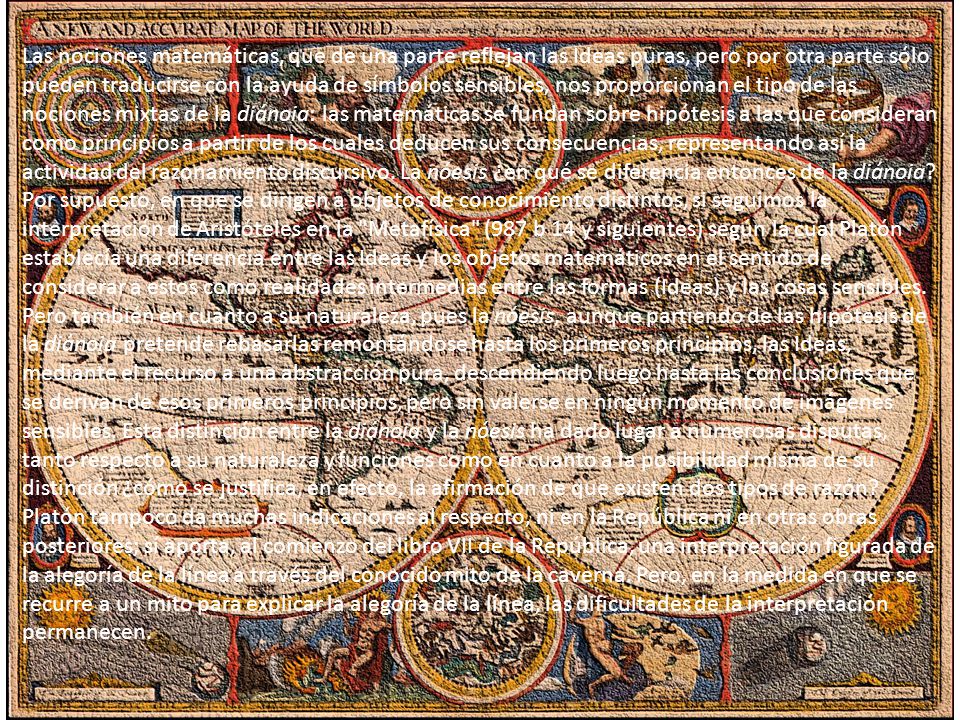 A NEW AND ACCVRAT MAP OF THE WORLD
Las nociones matemáticas, que de una parte reflejan las Ideas puras, pero por otra parte sólo
pueden traducirse con la ayuda de símbolos sensibles, nos proporcionan el tipo de las
nociones mixtas de la diánoia: las matemáticas se fundan sobre hipótesis a las que consideran
como principios a partir de los cuales deducen sus consecuencias, representando así la
actividad del razonamiento discursivo. La nóesis ¿en qué se diferencia entonces de la diánoia?
Por supuesto, en que se dirigen a objetos de conocimiento distintos, si seguimos la
interpretación de Aristóteles en la "Metafísica" (987 b 14 y siguientes) según la cual Platón
establecía una diferencia entre las Ideas y los objetos matemáticos en el sentido de
considerar a estos como realidades intermedias entre las formas (Ideas) y las cosas sensibles.
Pero también en cuanto a su naturaleza, pues la nóesis, aunque partiendo de las hipótesis de
la diánoia pretende rebasarlas remontándose hasta los primeros principios, las Ideas,
mediante el recurso a una abstracción pura, descendiendo luego hasta las conclusiones que
se derivan de esos primeros principios, pero sin valerse en ningún momento de imágenes
sensibles. Esta distinción entre la diánoia y la nóesis ha dado lugar a numerosas disputas,
tanto respecto a su naturaleza y funciones como en cuanto a la posibilidad misma de su
distinción ¿cómo se justifica, en efecto, la afirmación de que existen dos tipos de razón?
Platón tampoco da muchas indicaciones al respecto, ni en la República ni en otras obras
posteriores; sí aporta, al comienzo del libro VII de la República, una interpretación figurada de
la alegoría de la línea a través del conocido mito de la caverna. Pero, en la medida en que se
recurre a un mito para explicar la alegoría de la línea, las dificultades de la interpretación
permanecen.